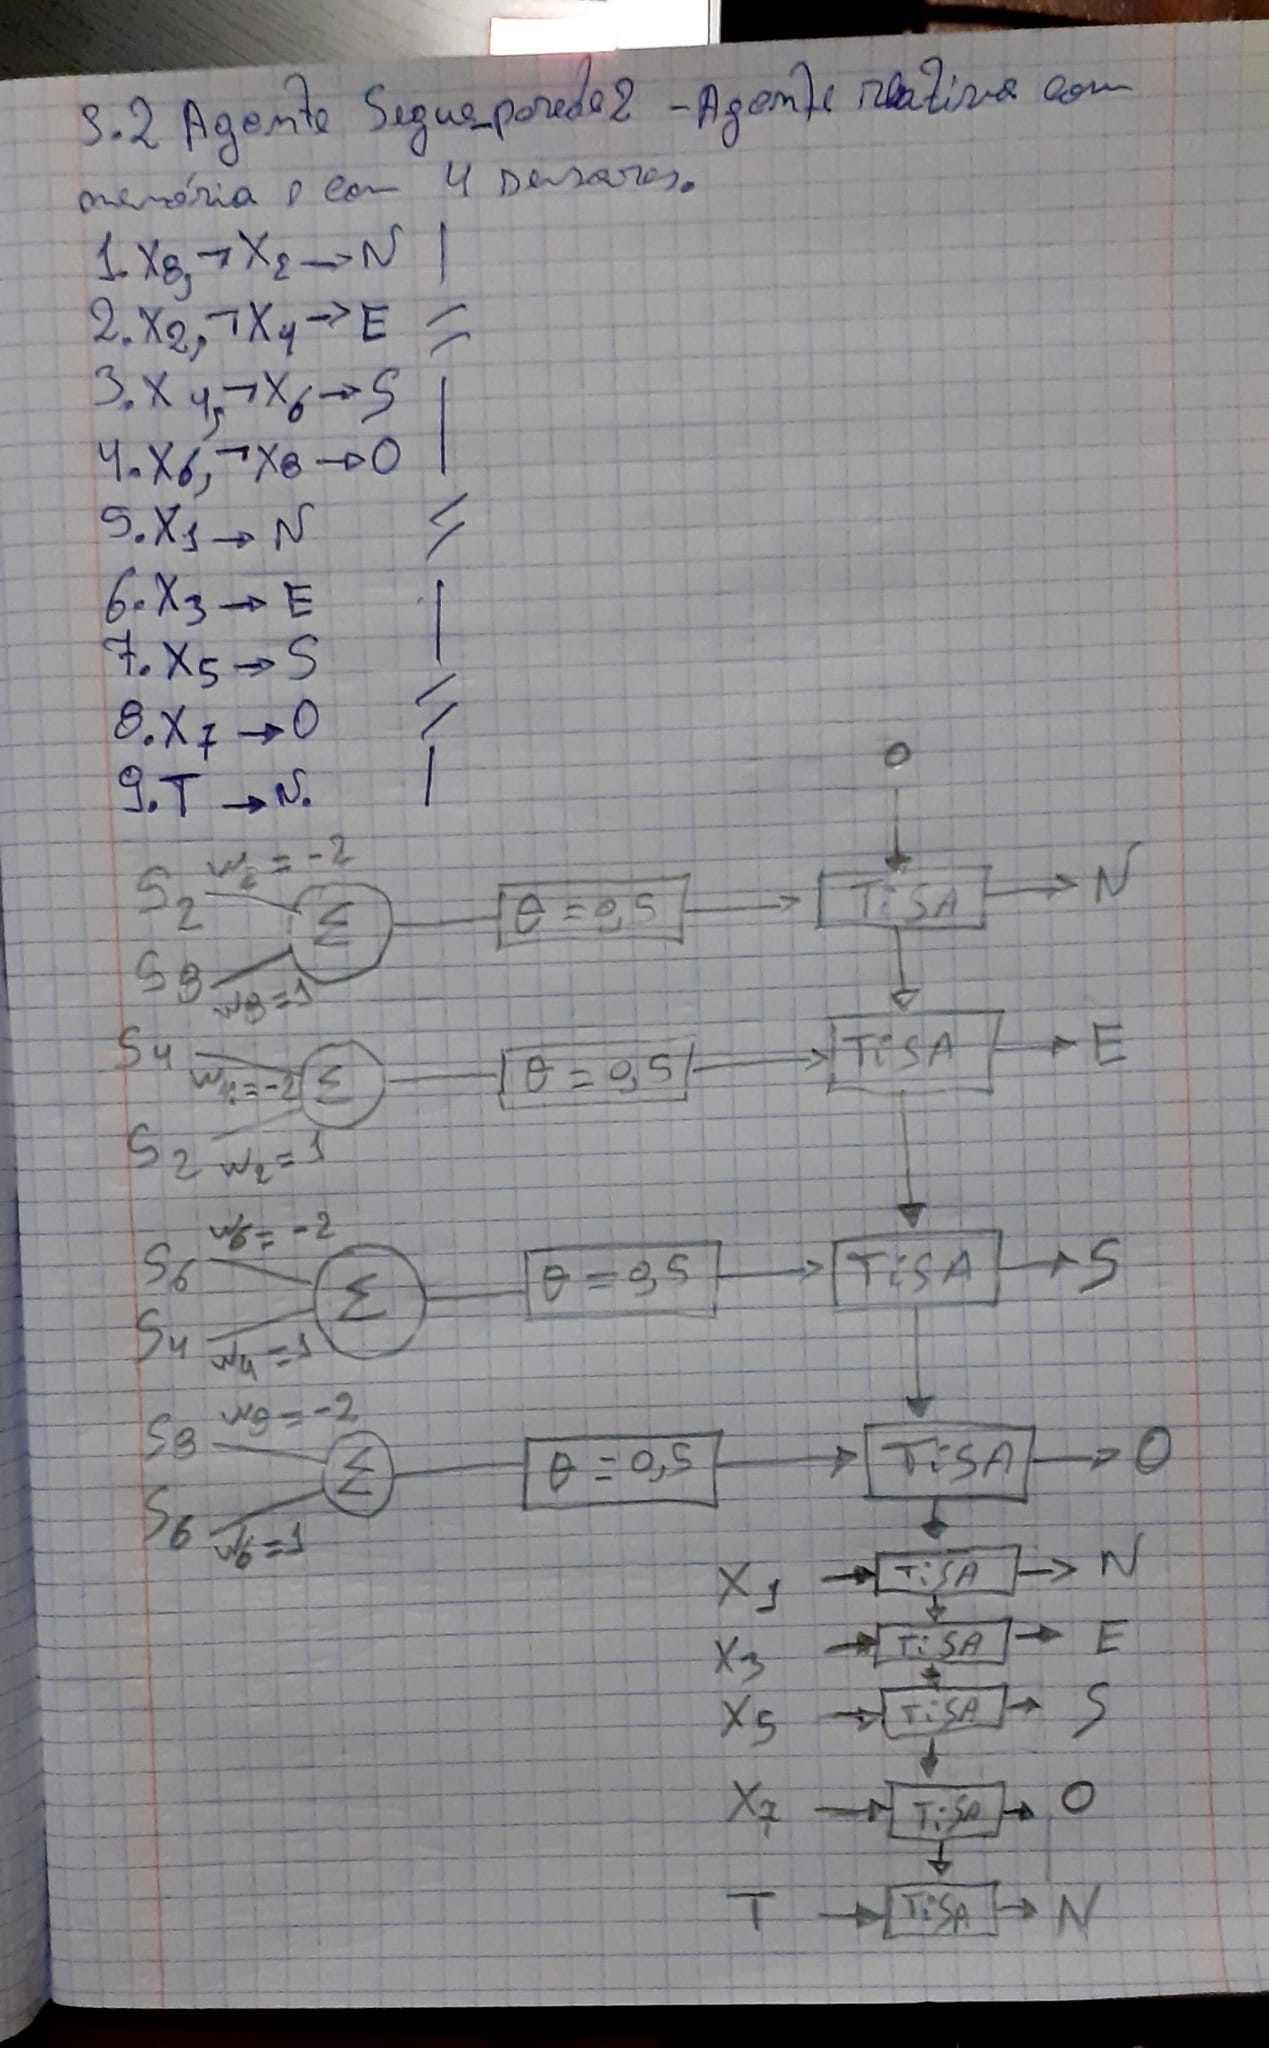 3.2 Agente Segue_parede2 - Agente reativo com
memória e com 4 sensores.
1. X8, ¬X2 → N
2. X2, ¬X4 → E
3. X4, ¬X6 → S
4. X6, ¬X8 → O
5. X1 → N
6. X3 → E
7. X5 → S
8. X7 → O
9. T → N.
0
S2 w2 = -2
Σ θ = 0,5 TiSA → N
S8 w8 = 1
S4 w4 = -2
Σ θ = 0,5 TiSA → E
S2 w2 = 1
S6 w6 = -2
Σ θ = 0,5 TiSA → S
S4 w4 = 1
S8 w8 = -2
Σ θ = 0,5 TiSA → O
S6 w6 = 1
X1 → TiSA → N
X3 → TiSA → E
X5 → TiSA → S
X7 → TiSA → O
T → TiSA → N